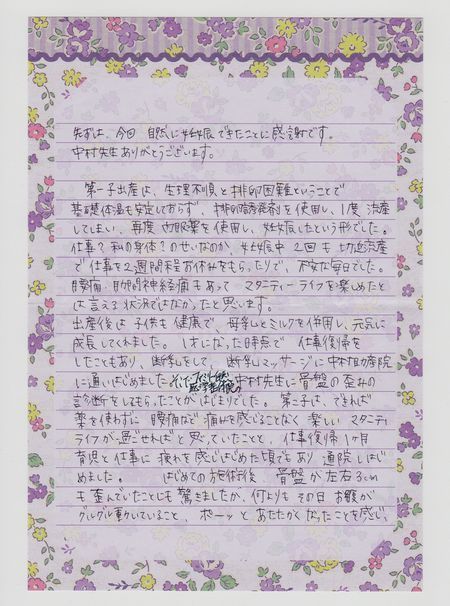 先ずは、今回 自然に妊娠できたことに感謝です。
中村先生ありがとうございます。
第一子出産は、生理不順と排卵困難ということで
基礎体温も安定しておらず、排卵誘発剤を使用し、1度 流産
してしまい、再度 内服薬を使用し、妊娠したという形でした。
仕事？私の身体？のせいなのか、妊娠中 2回も 切迫流産
で仕事を2週間程お休みをもらったりで、不安な毎日でした。
腰痛・肋間神経痛もあって マタニティーライフを楽しめたと
は言える状況ではなかったと思います。
出産後は子供も健康で、母乳とミルクを併用し、元気に
成長してくれました。1才になった時点で 仕事復帰を
したこともあり、断乳をして、断乳マッサージに中村助産院
に通いはじめました 中村先生に骨盤の歪みの
診断をしてもらったことがはじまりでした。第二子は、できれば
薬を使わずに 腰痛など痛みを感じることなく 楽しい マタニティ
ライフが過ごせればと思っていたことと、仕事復帰1ヶ月
育児と仕事に疲れを感じはじめた頃でもあり 通院しはじ
めました。 はじめての施術後、骨盤が左右3cm
も歪んでいたことにも驚きましたが、何よりも その日 お腹が
グルグル動いていること、ポーッと、あたたかくなったことを感じ、